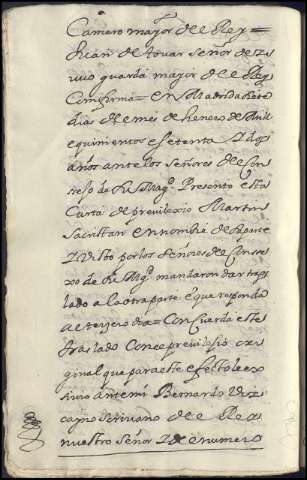 Camero mayor de el Rey =
Juan de touar Señor de
uio guarda mayor de el Rey
Confirma = en Madrid a siete
dias de el mes de henero de Mill
equinientos e setenta y dos
años ante los Señores de el Con
sejo de Su Magd Presento esta
Carta de preuilexio Martin
Sacristan en nombre de Su parte
Y Visto por los Señores de el Conse
xo de Su Magd mandaron dar tras
lado a la otra parte e que responda
a el terzero dia = Concuerda este
traslado Con el preuilejio ori
ginal que para este efecto le ex
siuio ante mi Bernardo Viz
cayno scriuano de el Rey
nuestro Señor Y de el numero